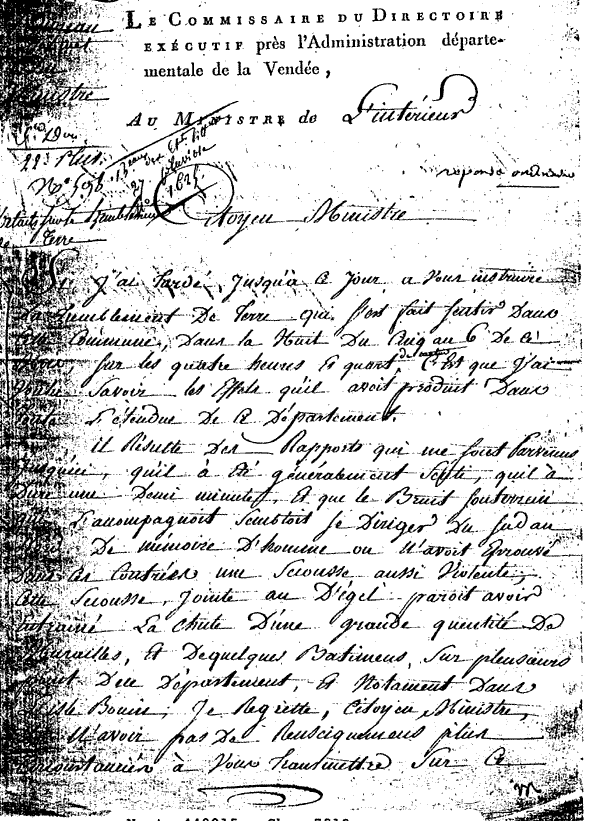 LE COMMISSAIRE DU DIRECTOIRE
EXÉCUTIF près l'Administration départe-
mentale de la Vendée,
AU MINISTRE de L'intérieur
N.º 598
1625
reponse
tremblement
Terre
Citoyen Ministre
Si J'ai tardé, Jusqu'à ce Jour, a Vous instruire
du tremblement De Terre qui s'est fait sentir Dans
Commune, Dans la Nuit Du Cinq au 6 De ce
mois sur les quatre heures et quart, C'est que J'ai
voulu Savoir les Effets qu'il avoit produit Dans
toute L'etendue De ce Département.
Il Résulte des Rapports qui me sont Parvenus
Jusqu'ici, qu'il à été généralement Senti, qu'il à
Duré une Demi minute, et que le Bruit souterrain
qui L'accompagnoit Sembloit se Diriger Du Sud au
Nord. De mémoire D'homme on N'avoit Eprouvé
Dans ces Contrées une Secousse aussi Violente;
Cette Secousse, Jointe au Dégel paroit avoir
entrainé La chute D'une grande quentité De
Murailles, et De quelques Batimens, Sur pleusieurs
point De ce Département, et Notament Dans
L'isle Bouin; Je Regrette, Citoyen Ministre,
N'avoir pas De Renseignemens plus
circonstanciés à Vous transmettre Sur Ce